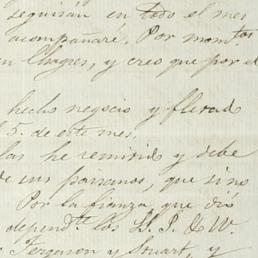 seguirán en todo el mes
acompañaré, Por mom.tos
en Chagres, y creo que por el
hecho negocio y fletad
5. de este mes.
las he remitido y debe
de sus paisanos, que si no
Por la fianza, que dió
depend.te los SS. P. & W.
Ferguson y Stuart, y